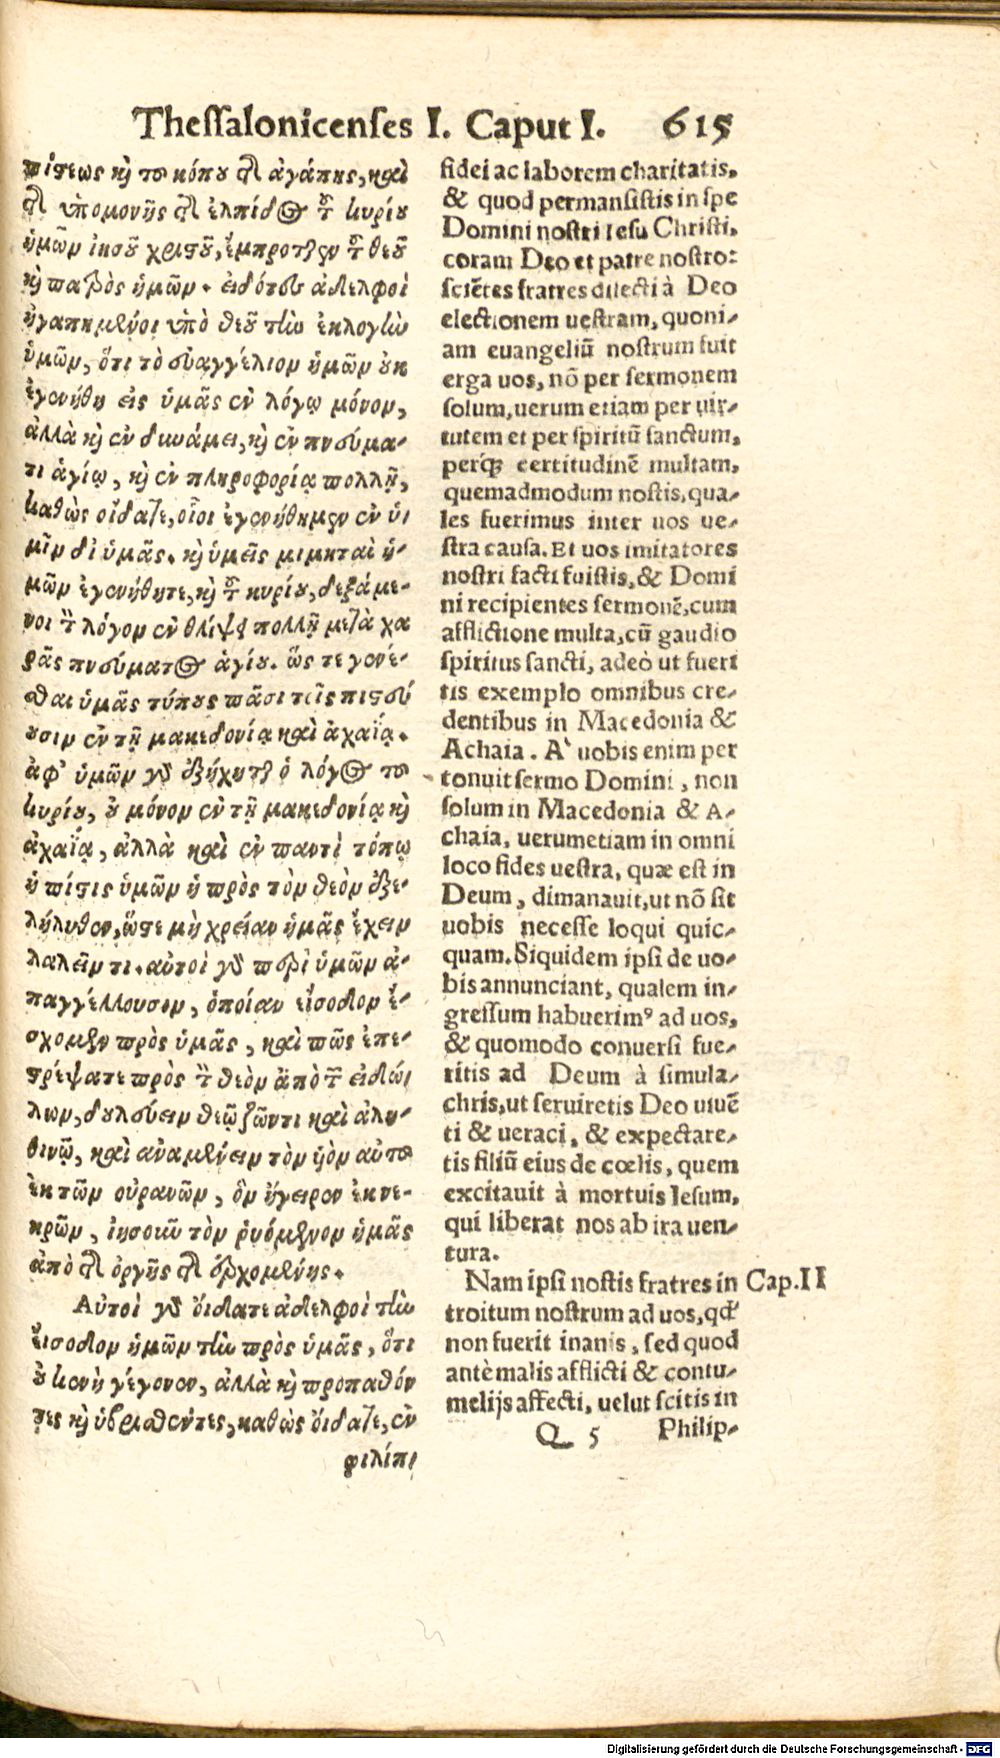 Thessalonicenses I. Caput I. 615
πίστεως καὶ τοῦ κόπου τῆς ἀγάπης, καὶ
τῆς ὑπομονῆς τῆς ἐλπίδος τοῦ κυρίου
ἡμῶν ἰησοῦ χριστοῦ, ἔμπροσθεν τοῦ θεοῦ
καὶ πατρὸς ἡμῶν. εἰδότες ἀδελφοὶ
ἠγαπημένοι ὑπὸ θεοῦ τὴν ἐκλογὴν
ὑμῶν, ὅτι τὸ εὐαγγέλιον ἡμῶν οὐκ
ἐγενήθη εἰς ὑμᾶς ἐν λόγῳ μόνον,
ἀλλὰ καὶ ἐν δυνάμει, καὶ ἐν πνεύμα-
τι ἁγίῳ, καὶ ἐν πληροφορίᾳ πολλῇ,
καθὼς οἴδατε, οἷοι ἐγενήθημεν ἐν ὑ
μῖν δι ὑμᾶς. καὶ ὑμεῖς μιμηταὶ ἡ-
μῶν ἐγενήθητε, καὶ τοῦ κυρίου, δεξάμε-
νοι τὸν λόγον ἐν θλίψει πολλῇ μετὰ χα
ρᾶς πνεύματος ἁγίου. ὥς τε γενέ-
σθαι ὑμᾶς τύπους πᾶσι τοῖς πιστεύ
ουσιν ἐν τῇ μακεδονίᾳ καὶ ἀχαΐᾳ.
ἀφ' ὑμῶν γὰρ ἐξήχηται ὁ λόγος τοῦ
κυρίου, οὐ μόνον ἐν τῇ μακεδονίᾳ καὶ
ἀχαΐᾳ, ἀλλὰ καὶ ἐν παντὶ τόπῳ
ἡ πίστις ὑμῶν ἡ πρὸς τὸν θεὸν ἐξε-
λήλυθεν, ὥστε μὴ χρείαν ἡμᾶς ἔχειν
λαλεῖν τι. αὐτοὶ γὰρ περὶ ὑμῶν ἀ-
παγγέλλουσιν, ὁποίαν εἴσοδον ἔ-
σχομεν πρὸς ὑμᾶς, καὶ πῶς ἐπε-
στρέψατε πρὸς τὸν θεὸν ἀπὸ τῶν εἰδώ
λων, δουλεύειν θεῷ ζῶντι καὶ ἀλη-
θινῷ, καὶ ἀναμένειν τὸν υἱὸν αὐτοῦ
ἐκ τῶν οὐρανῶν, ὃν ἤγειρεν ἐκ νε-
κρῶν, ἰησοῦν τὸν ῥυόμενον ἡμᾶς
ἀπὸ τῆς ὀργῆς τῆς ἐρχομένης.
Αὐτοὶ γὰρ οἴδατε ἀδελφοὶ τὴν
εἴσοδον ἡμῶν τὴν πρὸς ὑμᾶς, ὅτι
οὐ κενὴ γέγονεν, ἀλλὰ καὶ προπαθόν
τες καὶ ὑβρισθέντες, καθὼς οἴδατε, ἐν
φιλίπι
fidei ac laborem charitatis,
& quod permansistis in spe
Domini nostri Iesu Christi,
coram Deo et patre nostro:
sciẽtes fratres dilecti à Deo
electionem uestram, quoni-
am euangeliũ nostrum fuit
erga uos, nõ per sermonem
solum, uerum etiam per uir-
tutem et per spiritũ sanctum,
perq́; certitudinẽ multam,
quemadmodum nostis, qua-
les fuerimus inter uos ue-
stra causa. Et uos imitatores
nostri facti fuistis, & Domi
ni recipientes sermonẽ, cum
afflictione multa, cũ gaudio
spiritus sancti, adeò ut fueri
tis exemplo omnibus cre-
dentibus in Macedonia &
Achaia. A` uobis enim per
tonuit sermo Domini, non
solum in Macedonia & A-
chaia, uerumetiam in omni
loco fides uestra, quæ est in
Deum, dimanauit, ut nõ sit
uobis necesse loqui quic-
quam. Siquidem ipsi de uo-
bis annunciant, qualem in-
gressum habuerimꝰ ad uos,
& quomodo conuersi fue-
ritis ad Deum à simula-
chris, ut seruiretis Deo uiuẽ
ti & ueraci, & expectare-
tis filiũ eius de cœlis, quem
excitauit à mortuis Iesum,
qui liberat nos ab ira uen-
tura.
Nam ipsi nostis fratres in Cap. II
troitum nostrum ad uos, qđ
non fuerit inanis, sed quod
antè malis afflicti & contu-
melijs affecti, uelut scitis in
Q 5 Philip-
Digitalisierung gefördert durch die Deutsche Forschungsgemeinschaft - DFG